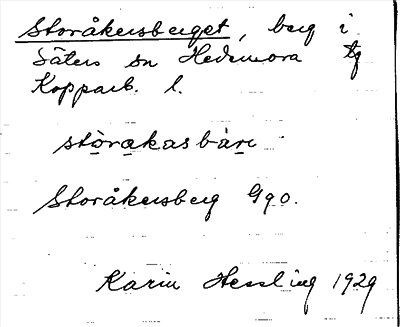 Storåkersberget, berg i
Säters sn Hedemora tg
Kopparb. l.
stòrakasbàrı
Storåkersberg Gqo.
Karin Hessling 1929